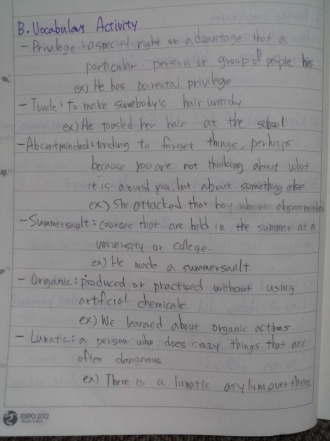 B. Vocabulary Activity
- Privilege : a special right or advantage that a
particular person or group of people has
ex) He has parental privilege
- Tousle : to make somebody's hair untidy
ex) He tousled her hair at the school
- Absentminded : tending to forget things, perhaps
because you are not thinking about what
it is around you, but about something else
ex) She attacked that boy who was absentminded
- Summersault : courses that are held in the summer at a
university or college.
ex) He made a summersault
- Organic : produced or practised without using
artificial chemicals
ex) We learned about organic actions
- Lunatic : a person who does crazy things that are
often dangerous
ex) There is a lunatic asylum over there
EXPO 2012